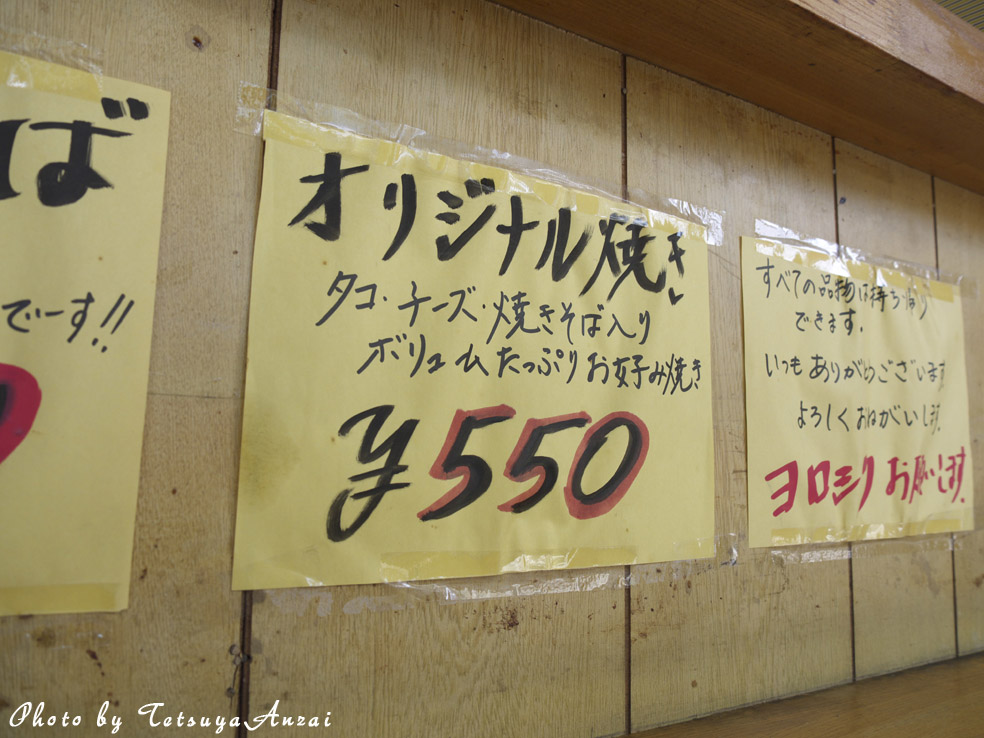 ば
でーす!!
オリジナル焼き
タコ・チーズ・焼きそば入り
ボリュームたっぷりお好み焼き
¥550
すべての品物は持ち帰り
できます.
いつもありがとうございます
よろしくおねがいします.
ヨロシクお願いします.
Photo by Tetsuya Anzai